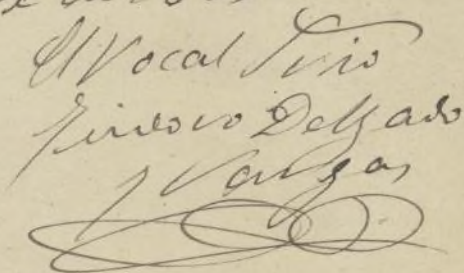 El Vocal Srio
Sinforo Delgado
y Vargas